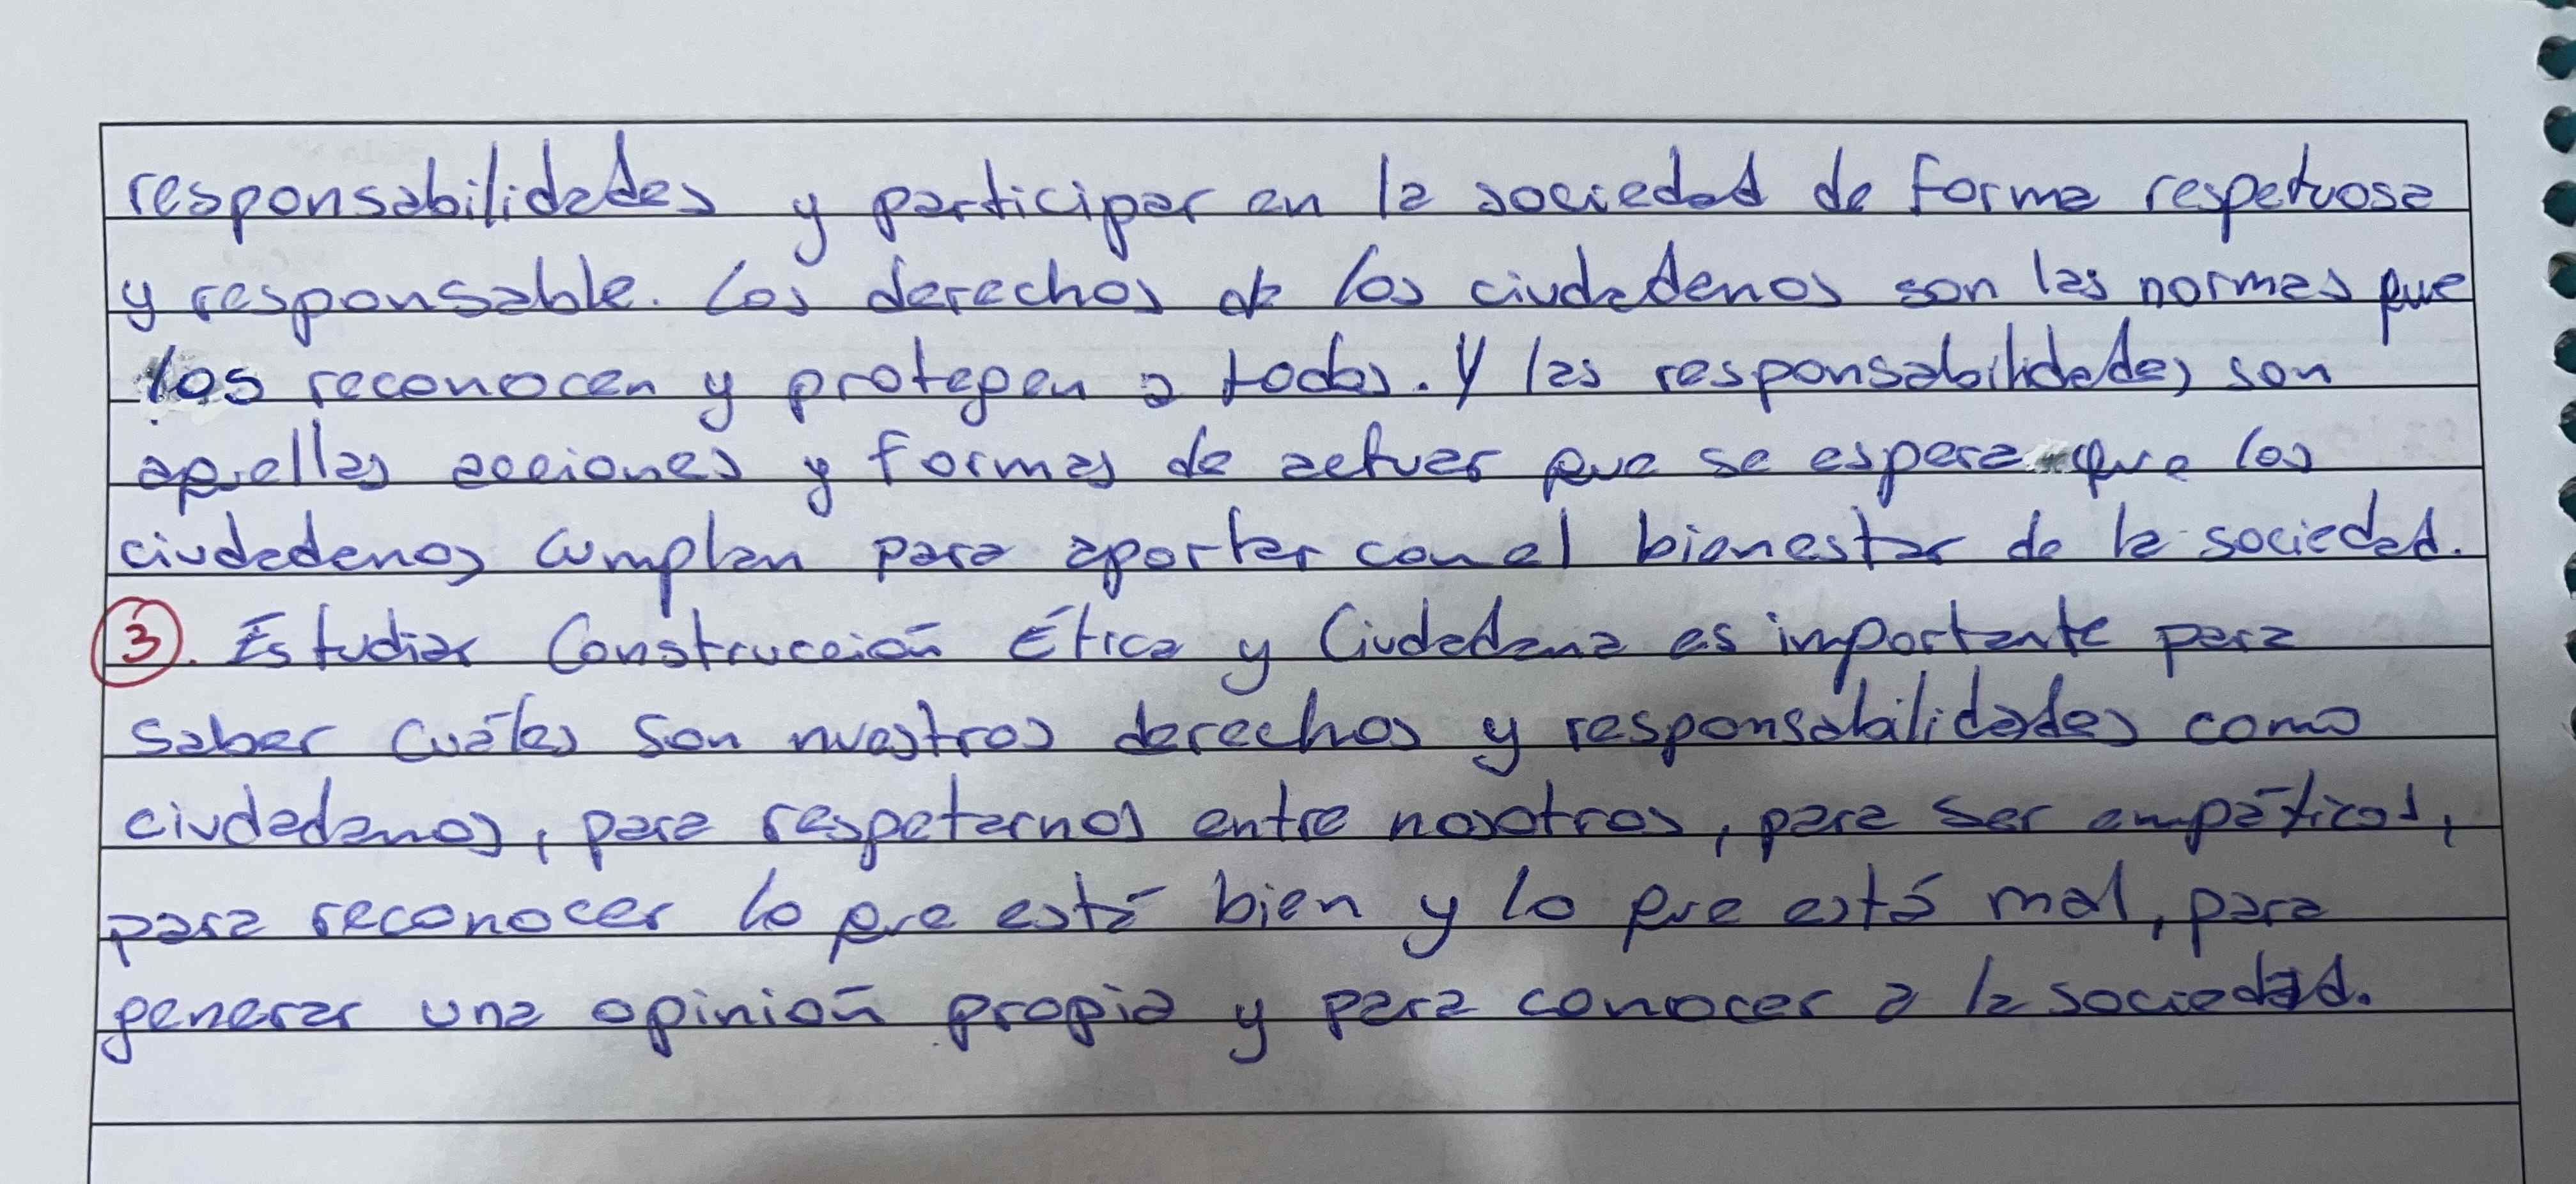 responsabilidades y participar en la sociedad de forma respetuosa
y responsable. Los derechos de los ciudadanos son las normas que
los reconocen y protegen a todos. Y las responsabilidades son
aquellas acciones y formas de actuar que se espera que los
ciudadanos cumplan para aportar con el bienestar de la sociedad.
3. Estudiar Construcción Ética y Ciudadana es importante para
saber cuáles son nuestros derechos y responsabilidades como
ciudadanos, para respetarnos entre nosotros, para ser empáticos,
para reconocer lo que está bien y lo que está mal, para
generar una opinión propia y para conocer a la sociedad.